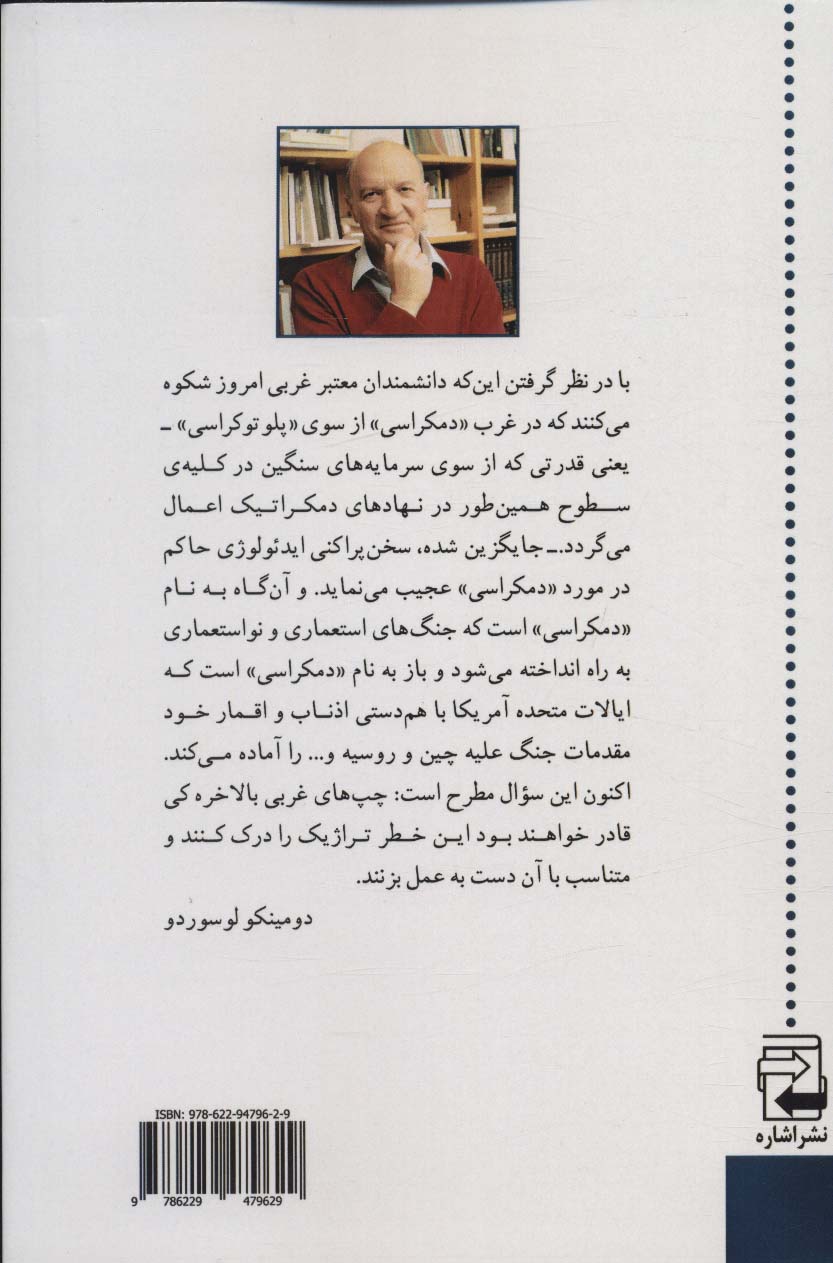 با در نظر گرفتن این‌که دانشمندان معتبر غربی امروز شکوه
می‌کنند که در غرب «دمکراسی» از سوی «پلوتوکراسی» ــ
یعنی قدرتی که از سوی سرمایه‌های سنگین در کلیه‌ی
سطوح همین‌طور در نهادهای دمکراتیک اعمال
می‌گردد.ــ جایگزین شده، سخن‌پراکنی ایدئولوژی حاکم
در مورد «دمکراسی» عجیب می‌نماید. و آن‌گاه به نام
«دمکراسی» است که جنگ‌های استعماری و نواستعماری
به راه انداخته می‌شود و باز به نام «دمکراسی» است که
ایالات متحده آمریکا با هم‌دستی اذناب و اقمار خود
مقدمات جنگ علیه چین و روسیه و... را آماده می‌کند.
اکنون این سؤال مطرح است: چپ‌های غربی بالاخره کی
قادر خواهند بود این خطر تراژیک را درک کنند و
متناسب با آن دست به عمل بزنند.
دومینکو لوسوردو
نشر اشاره
ISBN: 978-622-94796-2-9
9 786229 479629